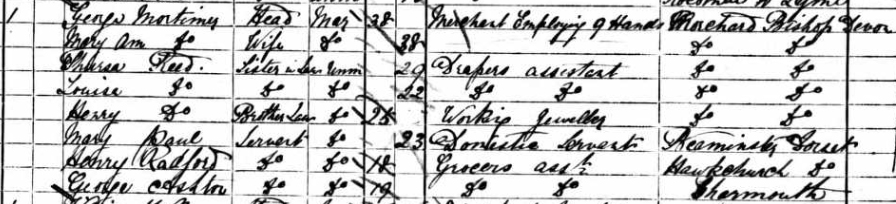 1 George Mortimer Head Mar 38 Merchant Employing 9 Hands Morchard Bishop Devon
Mary Ann Do Wife Do 38 Do Do
Thursa Reed. Sister in Law Unm 29 Drapers assistant Do Do
Louisa Do Do Do 22 Do Do Do Do
Henry Do Brother Law Do 25 Working Jeweller Do Do
Mary Paul Servant Do 23 Domestic Servant Beaminster Dorset
Henry Radford Do Do 18 Grocers asst. Hawkchurch Do
George Ashton Do Do 19 Do Do Charmouth